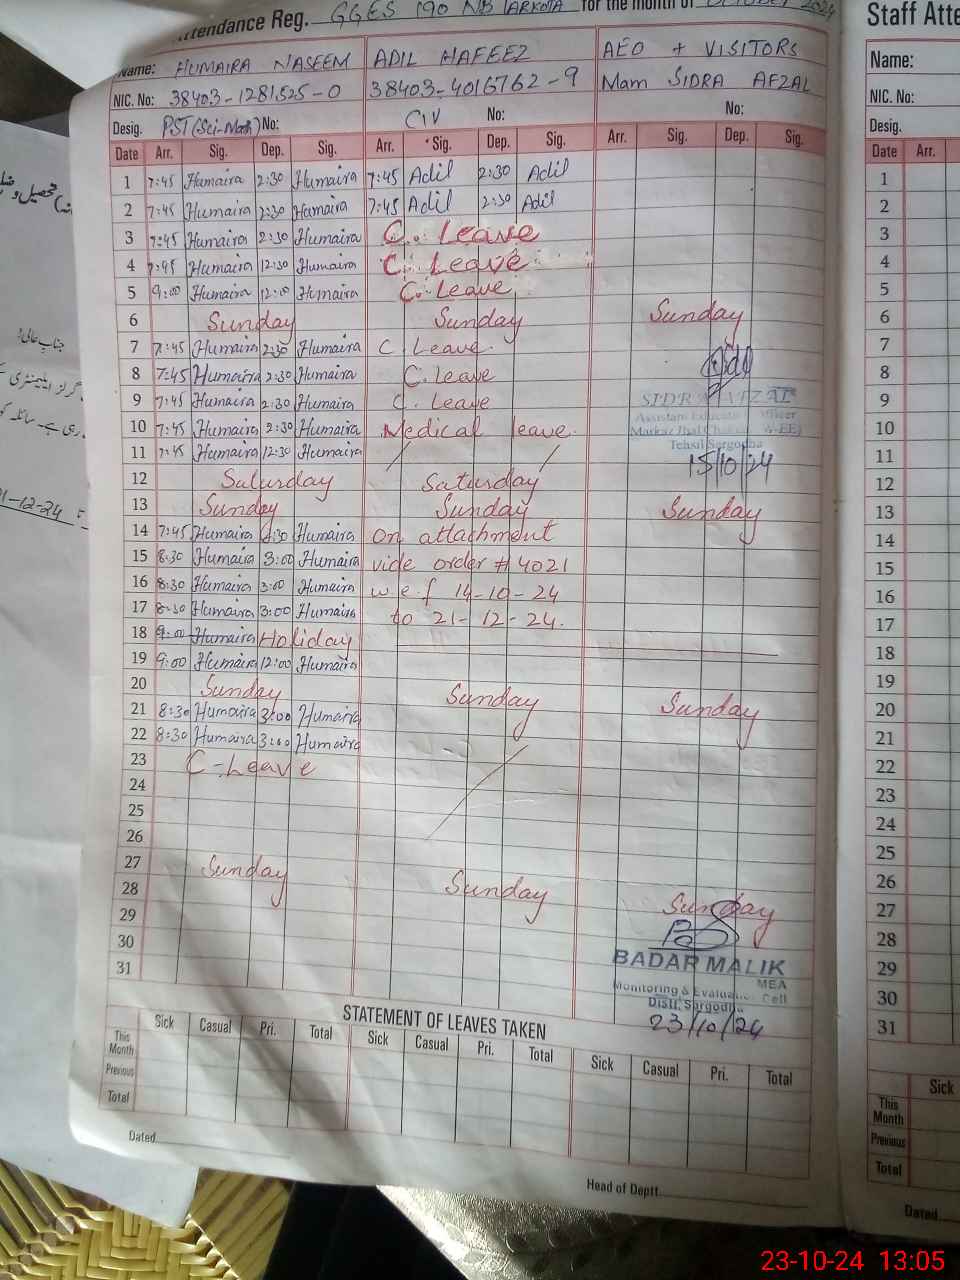 Attendance Reg. GGES 190 NB for the month of October 2024
Name: HUMAIRA NASEEM ADIL HAFEEZ AEO + VISITORS
NIC. No: 38403-1281525-0 38403-4016762-9 Mam SIDRA AFZAL
Desig. PST(Sci-Math) No: CIV No: No:
Date Arr. Sig. Dep. Sig. Arr. Sig. Dep. Sig. Arr. Sig. Dep. Sig.
1 7:45 Humaira 2:30 Humaira 7:45 Adil 2:30 Adil
2 7:45 Humaira 2:30 Humaira 7:45 Adil 2:30 Adil
3 7:45 Humaira 2:30 Humaira C. Leave
4 7:45 Humaira 12:30 Humaira C. Leave
5 9:00 Humaira 12:00 Humaira C. Leave
6 Sunday Sunday Sunday
7 7:45 Humaira 2:30 Humaira C Leave
8 7:45 Humaira 2:30 Humaira C. Leave
9 7:45 Humaira 2:30 Humaira C. Leave SIDRA AFZAL
10 7:45 Humaira 2:30 Humaira Medical leave Tehsil Sargodha
11 7:45 Humaira 12:30 Humaira 15/10/24
12 Saturday Saturday
13 Sunday Sunday Sunday
14 7:45 Humaira 2:30 Humaira on attachment
15 8:30 Humaira 3:00 Humaira vide order # 4021
16 8:30 Humaira 3:00 Humaira w.e.f 14-10-24
17 8:30 Humaira 3:00 Humaira to 21-12-24.
18 9:00 Humaira Holiday
19 9:00 Humaira 12:00 Humaira
20 Sunday Sunday Sunday
21 8:30 Humaira 3:00 Humaira
22 8:30 Humaira 3:00 Humaira
23 C-Leave
24
25
26
27 Sunday Sunday Sunday
28
29
30 BADAR MALIK
31 MEA
Monitoring & Evaluation Cell
Distt. Sargodha
23/10/24
STATEMENT OF LEAVES TAKEN
Sick Casual Pri. Total Sick Casual Pri. Total Sick Casual Pri. Total
This Month
Previous
Total
Dated
Head of Deptt.
Staff Atte
Name:
NIC. No:
Desig.
Date Arr.
1
2
3
4
5
6
7
8
9
10
11
12
13
14
15
16
17
18
19
20
21
22
23
24
25
26
27
28
29
30
31
Sick
This Month
Previous
Total
Dated
جناب عالی!
1-12-24
23-10-24 13:05